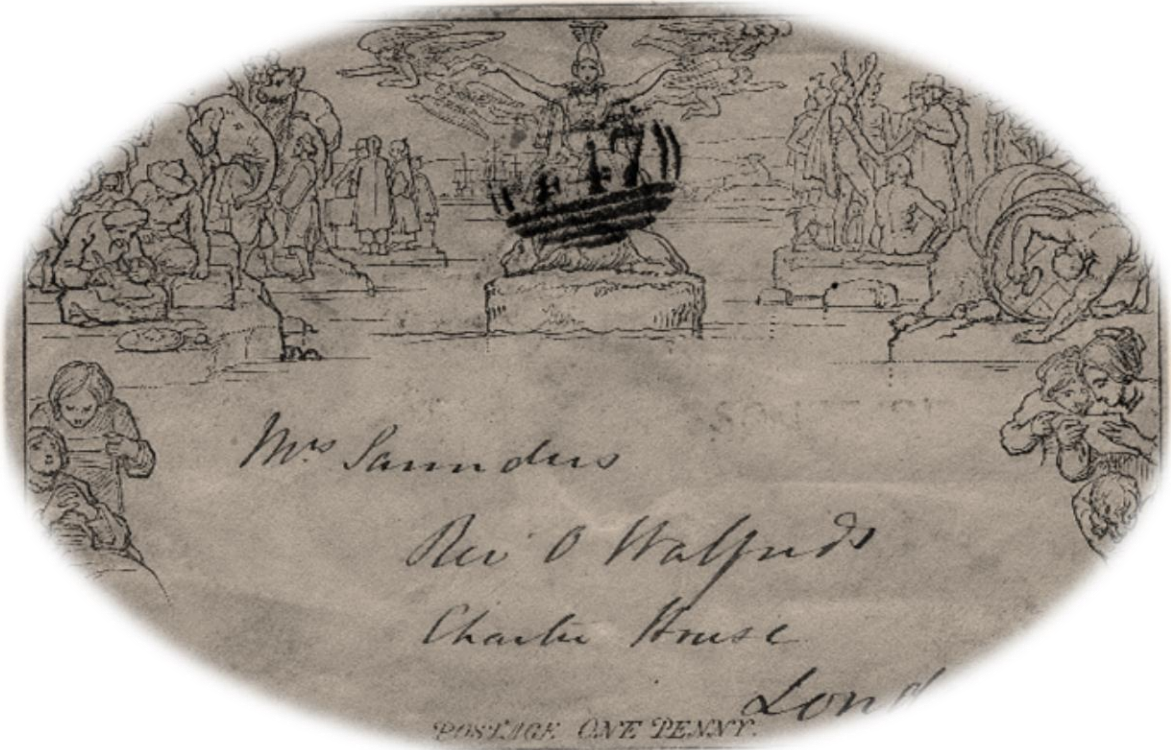 Mrs Saunders
Rev O Walfords
Charter House
Lond
POSTAGE ONE PENNY.